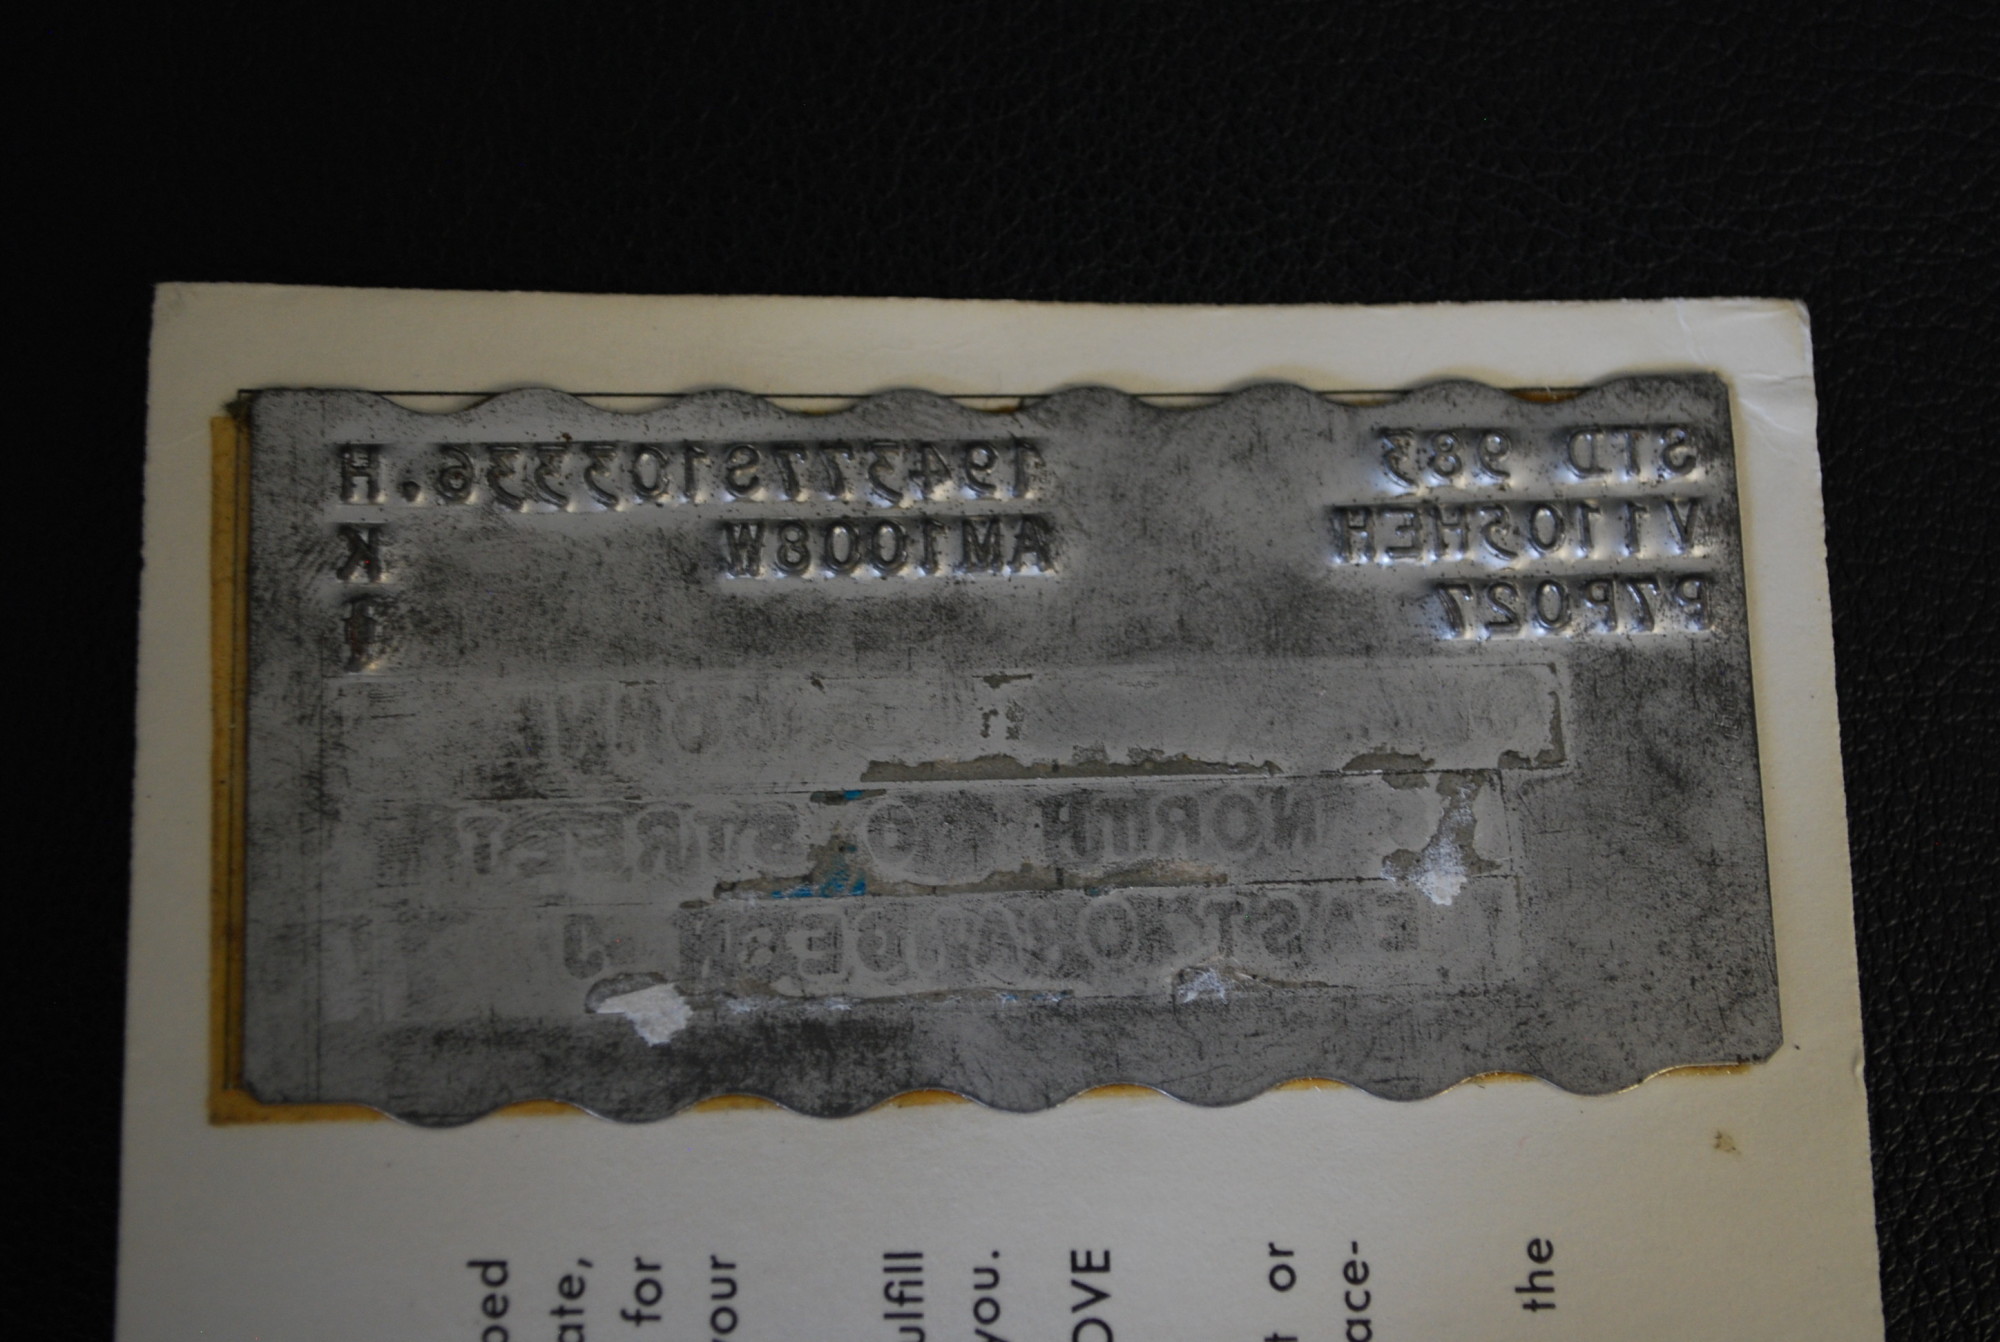 STD 983 194377S103336.H
V1105HEH AM1008W K
P7P027 J
NORTH STREET
EAST ORANGE N J
ped
ate,
for
your
ulfill
you.
OVE
t or
ace-
the